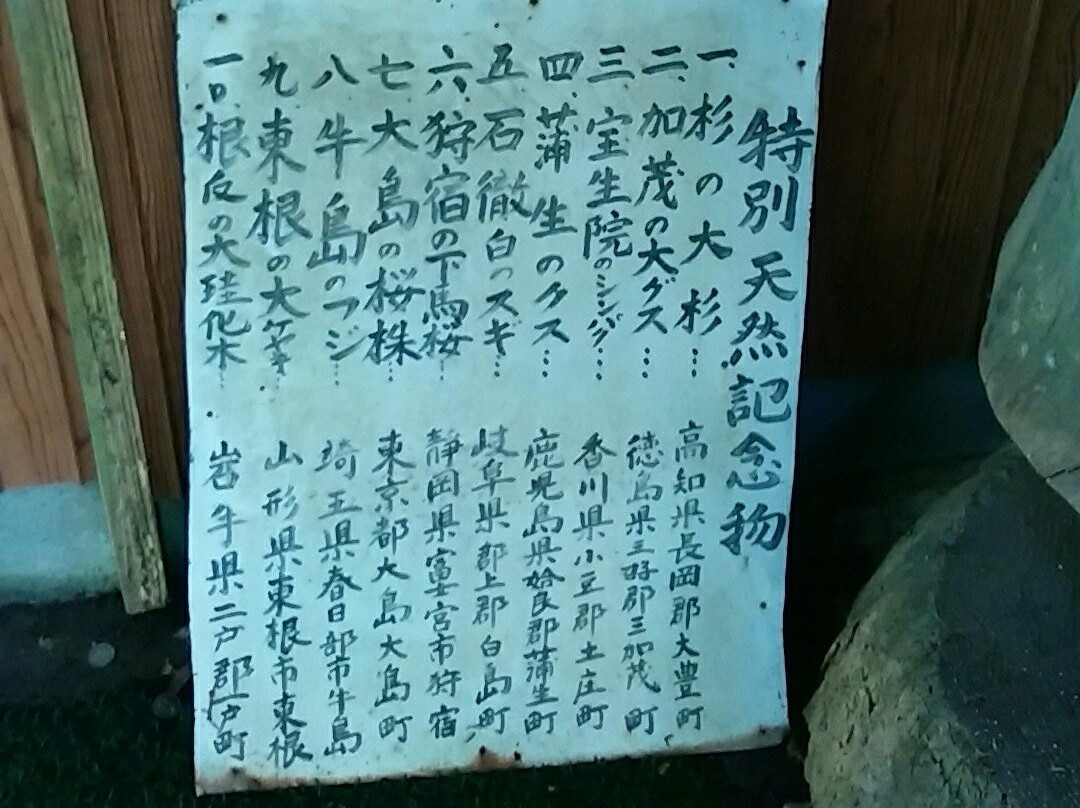 特別天然記念物
一、杉の大杉… 高知県長岡郡大豊町
二、加茂の大グス… 徳島県三好郡三加茂町
三、宝生院のシンパク… 香川県小豆郡土庄町
四、蒲生のクス… 鹿児島県姶良郡蒲生町
五、石徹白のスギ… 岐阜県郡上郡白鳥町
六、狩宿の下馬桜… 静岡県富士宮市狩宿
七、大島の桜株… 東京都大島大島町
八、牛島のフジ… 埼玉県春日部市牛島
九、東根の大ケヤキ… 山形県東根市東根
一〇、根反の大珪化木… 岩手県二戸郡一戸町